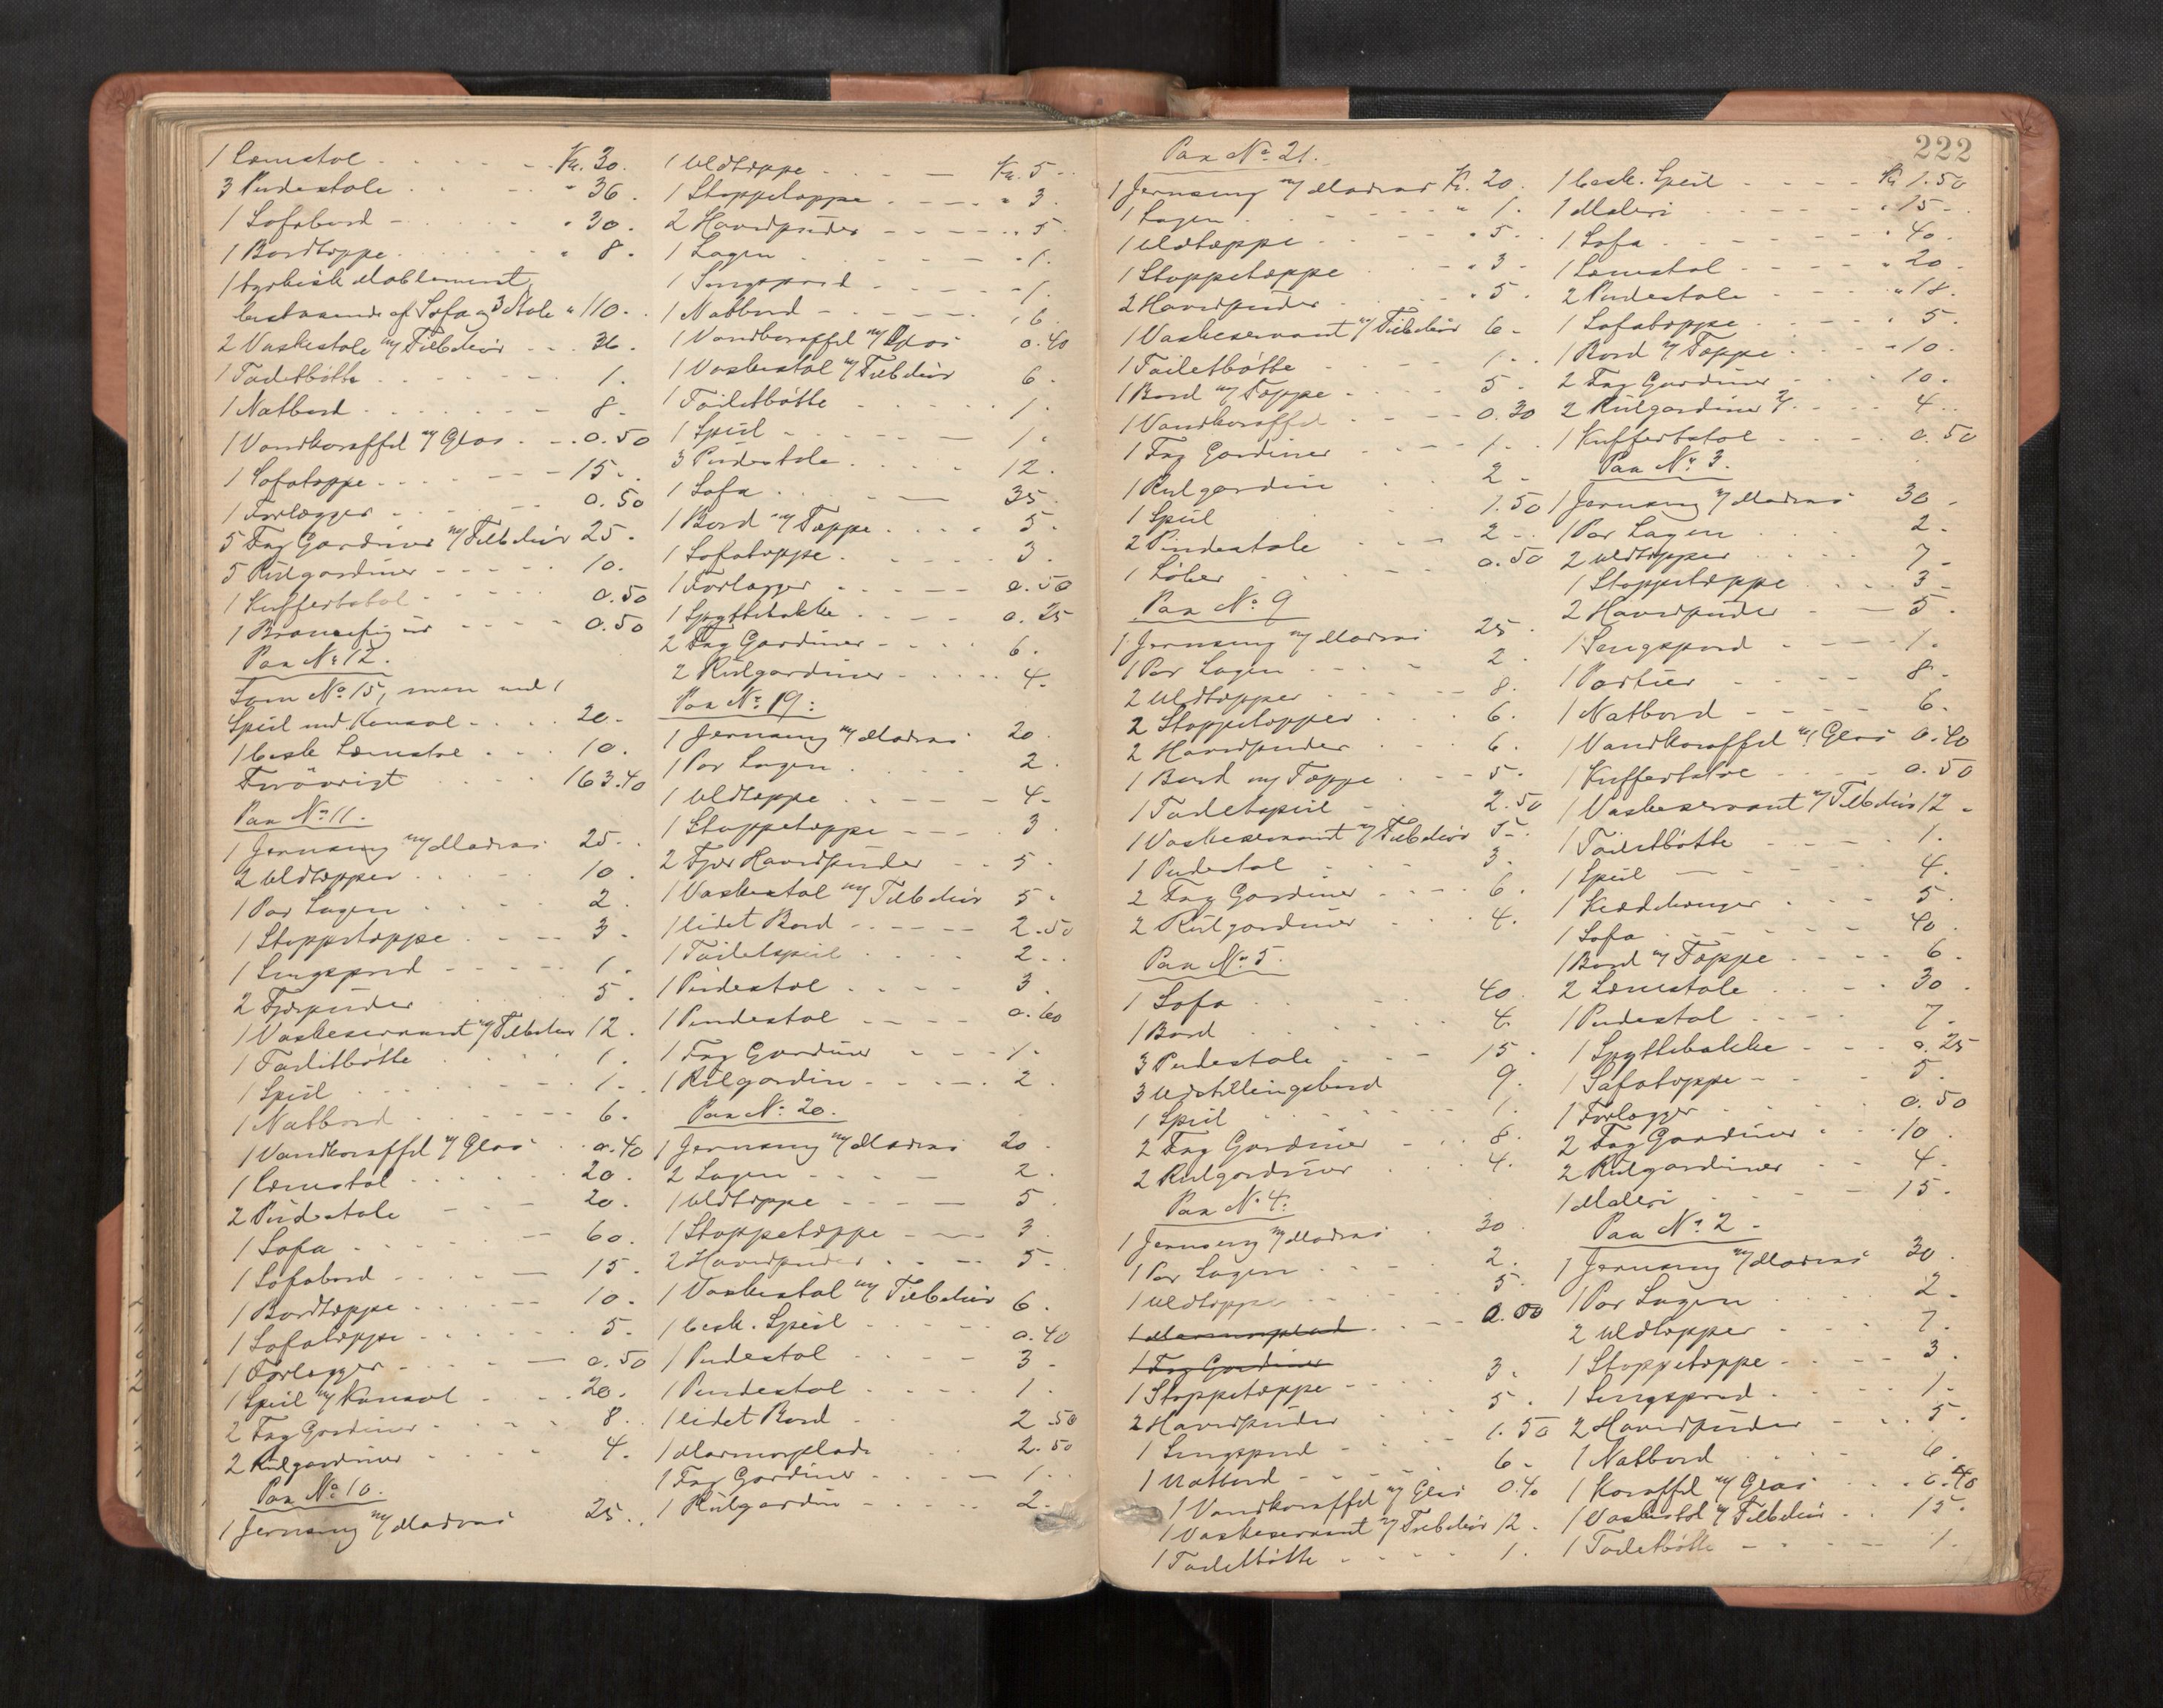 1 Lænestol . . . . . Kr. 30.
3 Pindestole . . . " 36.
1 Sofabord - . . . " 30.
1 Bordtæppe . . . . " 8.
1 tyrkisk Møblement,
bestaaende af Sofa og 3 Stole " 110.
2 Vaskestole m/ Tilbehør . . 36.
1 Toiletbøtte . . . . . 1.
1 Natbord . . . . . 8.
1 Vandkaraffel m/ Glas . . . 0.50
1 Sofatæppe . . . . . 15.
1 Forlægger . . . . . 0.50
5 Fag Gardiner m/ Tilbehør 25.
5 Rulgardiner . . . . . 10.
1 Kuffertstol . . . . . 0.50
1 Broncefigur . . . . 0.50
Paa No 12.
Som No 15, men med 1
Speil med Konsol . . . 20.
1 besk Lænestol . . . 10.
Forøvrigt . . . . 163.40
Paa No 11.
1 Jernseng m/ Madras . 25.
2 Uldtæpper . . . . 10.
1 Par Lagen . . . . 2.
1 Stoppetæppe . . . . 3.
1 Sengspred . . . . 1.
2 Fjærpuder . . . . 5.
1 Vaskeservant m/ Tilbehør 12.
1 Toiletbøtte . . . . 1.
1 Speil . . . . . 1.
1 Natbord . . . . . 6.
1 Vandkaraffel m/ Glas . . 0.40
1 Lænestol . . . . . 20.
2 Pindestole . . . 20.
1 Sofa . . . . . 60.
1 Sofabord . . . . 15.
1 Bordtæppe . . . . 10.
1 Sofatæppe . . . . 5.
1 Forlægger . . . . 0.50
1 Speil m/ Konsol . . . 20.
2 Fag Gardiner . . . . 8.
2 Rulgardiner . . . . 4.
Paa No 10.
1 Jernseng m/ Madras . 25.
1 Uldtæppe . . . . Kr. 5.
1 Stoppetæppe . . . . " 3.
2 Hovedpuder . . . . " 5.
1 Lagen . . . . . " 1.
1 Sengspred . . . . " 1.
1 Natbord . . . . " 6.
1 Vandkaraffel m/ Glas 0.40
1 Vaskestol m/ Tilbehør 6.
1 Toiletbøtte . . . . 1.
1 Speil . . . . . 1.
3 Pindestole . . . . 12.
1 Sofa . . . . . 35.
1 Bord m/ Tæppe . . . . 5.
1 Sofatæppe . . . . 3.
1 Forlægger . . . . 0.50
1 Spyttebakke . . . . 0.25
2 Fag Gardiner . . . . 6.
2 Rulgardiner . . . . 4.
Paa No 19:
1 Jernseng m/ Madras . 20.
1 Par Lagen . . . . 2.
1 Uldtæppe . . . . 4.
1 Stoppetæppe . . . . 3.
2 Fjær Hovedpuder . . 5.
1 Vaskestol m/ Tilbehør 5.
1 lidet Bord . . . . 2.50
1 Toiletspeil . . . . 2.
1 Pindestol . . . . 3.
1 Pindestol . . . . 0.60
1 Fag Gardiner . . . 1.
1 Rulgardin . . . . 2.
Paa No 20.
1 Jernseng m/ Madras 20.
2 Lagen . . . . 2.
1 Uldtæppe . . . . 5.
1 Stoppetæppe . . . . 3.
2 Hovedpuder . . . . 5.
1 Vaskestol m/ Tilbehør 6.
1 besk. Speil . . . . 0.40
1 Pindestol . . . . 3.
1 Pindestol . . . . 1.
1 lidet Bord . . 2.50
1 Marmorplade . . 2.50
1 Fag Gardiner . . . . 1.
1 Rulgardin . . . . 2.
Paa No 21.
1 Jernseng m/ Madras Kr. 20.
1 Lagen . . . . " 1.
1 Uldtæppe . . . . " 5.
1 Stoppetæppe . . . " 3.
2 Hovedpuder . . . " 5.
1 Vaskeservant m/ Tilbehør 6.
1 Toiletbøtte . . . . 1.
1 Bord m/ Tæppe . . . . 5.
1 Vandkaraffel . . . . 0.30
1 Fag Gardiner . . . . 1.
1 Rulgardin . . 2.
1 Speil . . 1.50
2 Pindestole . . . . 2.
1 Løber . . . . 0.50
Paa No 9
1 Jernseng m/ Madras 25.
1 Par Lagen . . . . 2.
2 Uldtæpper . . . . 8.
2 Stoppetæpper . . . 6.
2 Hovedpuder . . . 6.
1 Bord m/ Tæppe . . . 5.
1 Toiletspeil . . 2.50
1 Vaskeservant m/ Tilbehør 5.
1 Pindestol . . . . 3.
2 Fag Gardiner . . . . 6.
2 Rulgardiner . . . 4.
Paa No 5.
1 Sofa . . . . 40.
1 Bord . . . . 4.
3 Pindestole . . . 15.
3 Udstillingsbord 9.
1 Speil . . . . 1.
2 Fag Gardiner . . 8.
2 Rulgardiner . . . 4.
Paa No 4:
1 Jernseng m/ Madras . 30.
1 Par Lagen . . . . 2.
1 Uldtæppe . . . . 5.
1 Marmorplade . . . .
1 Fag Gardiner
1 Stoppetæppe . . . 3.
2 Hovedpuder . . . 5.
1 Sengspred . . . 1.50
1 Natbord . . . . 6.
1 Vandkaraffel m/ Glas 0.40
1 Vaskeservant m/ Tilbehør 12.
1 Toiletbøtte . . . . 1.
222
1 besk. Speil . . . . Kr 1.50
1 Maleri . . . . " 15.
1 Sofa . . . . " 40.
1 Lænestol . . . . " 20.
2 Pindestole . . . . " 18.
1 Sofatæppe . . . . 5.
1 Bord m/ Tæppe . . . . " 10.
2 Fag Gardiner . . . 10.
2 Rulgardiner . . . 4.
1 Kuffertstol . . . . 0.50
Paa No 3.
1 Jernseng m/ Madras 30.
1 Par Lagen . . . . 2.
2 Uldtæpper . . . . 7.
1 Stoppetæppe . . . . 3.
2 Hovedpuder . . . 5.
1 Sengspred . . . . 1.
1 Portier . . . . 8.
1 Natbord . . . . 6.
1 Vandkaraffel m/ Glas 0.40
1 Kuffertstol . . . . 0.50
1 Vaskeservant m/ Tilbehør 12.
1 Toiletbøtte . . . . 1.
1 Speil . . . . 4.
1 Klædehænger . . . . 5.
1 Sofa . . . . 40.
1 Bord m/ Tæppe . . . . 6.
2 Lænestole . . . . 30.
1 Pindestol . . . . 7.
1 Spyttebakke . . . 0.25
1 Sofatæppe . . . . 5.
1 Forlægger . . . . 0.50
2 Fag Gardiner . . . 10.
2 Rulgardiner . . . 4.
1 Maleri . . . . 15.
Paa No 2.
1 Jernseng m/ Madras 30.
1 Par Lagen . . . . 2.
2 Uldtæpper . . . . 7.
1 Stoppetæppe . . . . 3.
1 Sengspred . . . . 1.
2 Hovedpuder . . . . 5.
1 Natbord . . . . 6.
1 Karaffel m/ Glas . . 0.40
1 Vaskestol m/ Tilbehør . . 15.
1 Toiletbøtte . . . . 1.